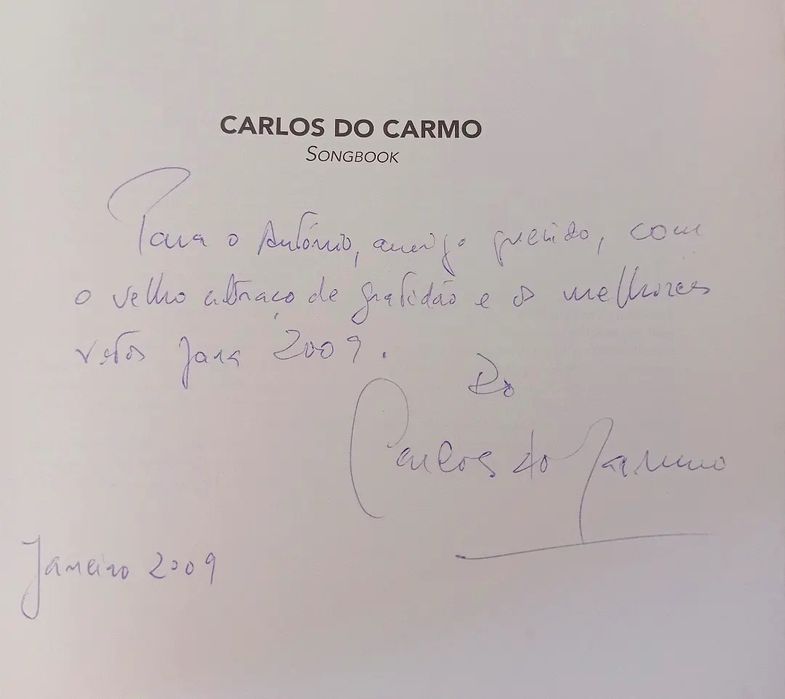 CARLOS DO CARMO
SONGBOOK
Para o António, amigo querido, com
o velho abraço de gratidão e os melhores
votos para 2009.
Do
Carlos do Carmo
Janeiro 2009